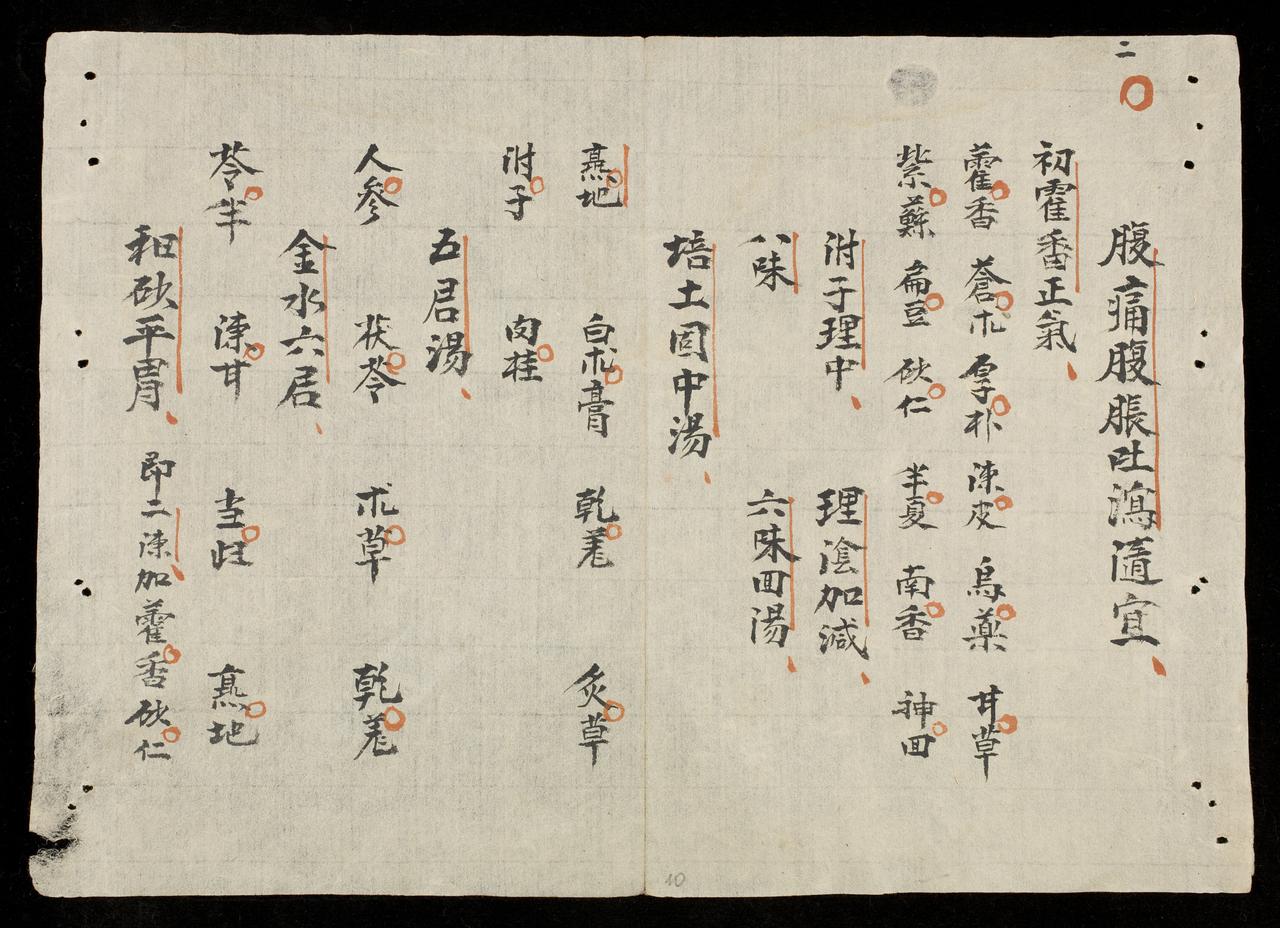 二
腹痛腹脹吐瀉隨宜
初霍香正氣
藿香 蒼朮 厚朴 陳皮 烏藥 甘草
紫蘇 扁豆 砂仁 半夏 南香 神曲
附子理中 理陰加減
八味 六味回湯
培土固中湯
熟地 白朮膏 乾羌 炙草
附子 肉桂
五君湯
人參 茯苓 朮草 乾羌
金水六君
苓半 陳甘 当归 熟地
和砂平胃 即二陳加藿香砂仁
10